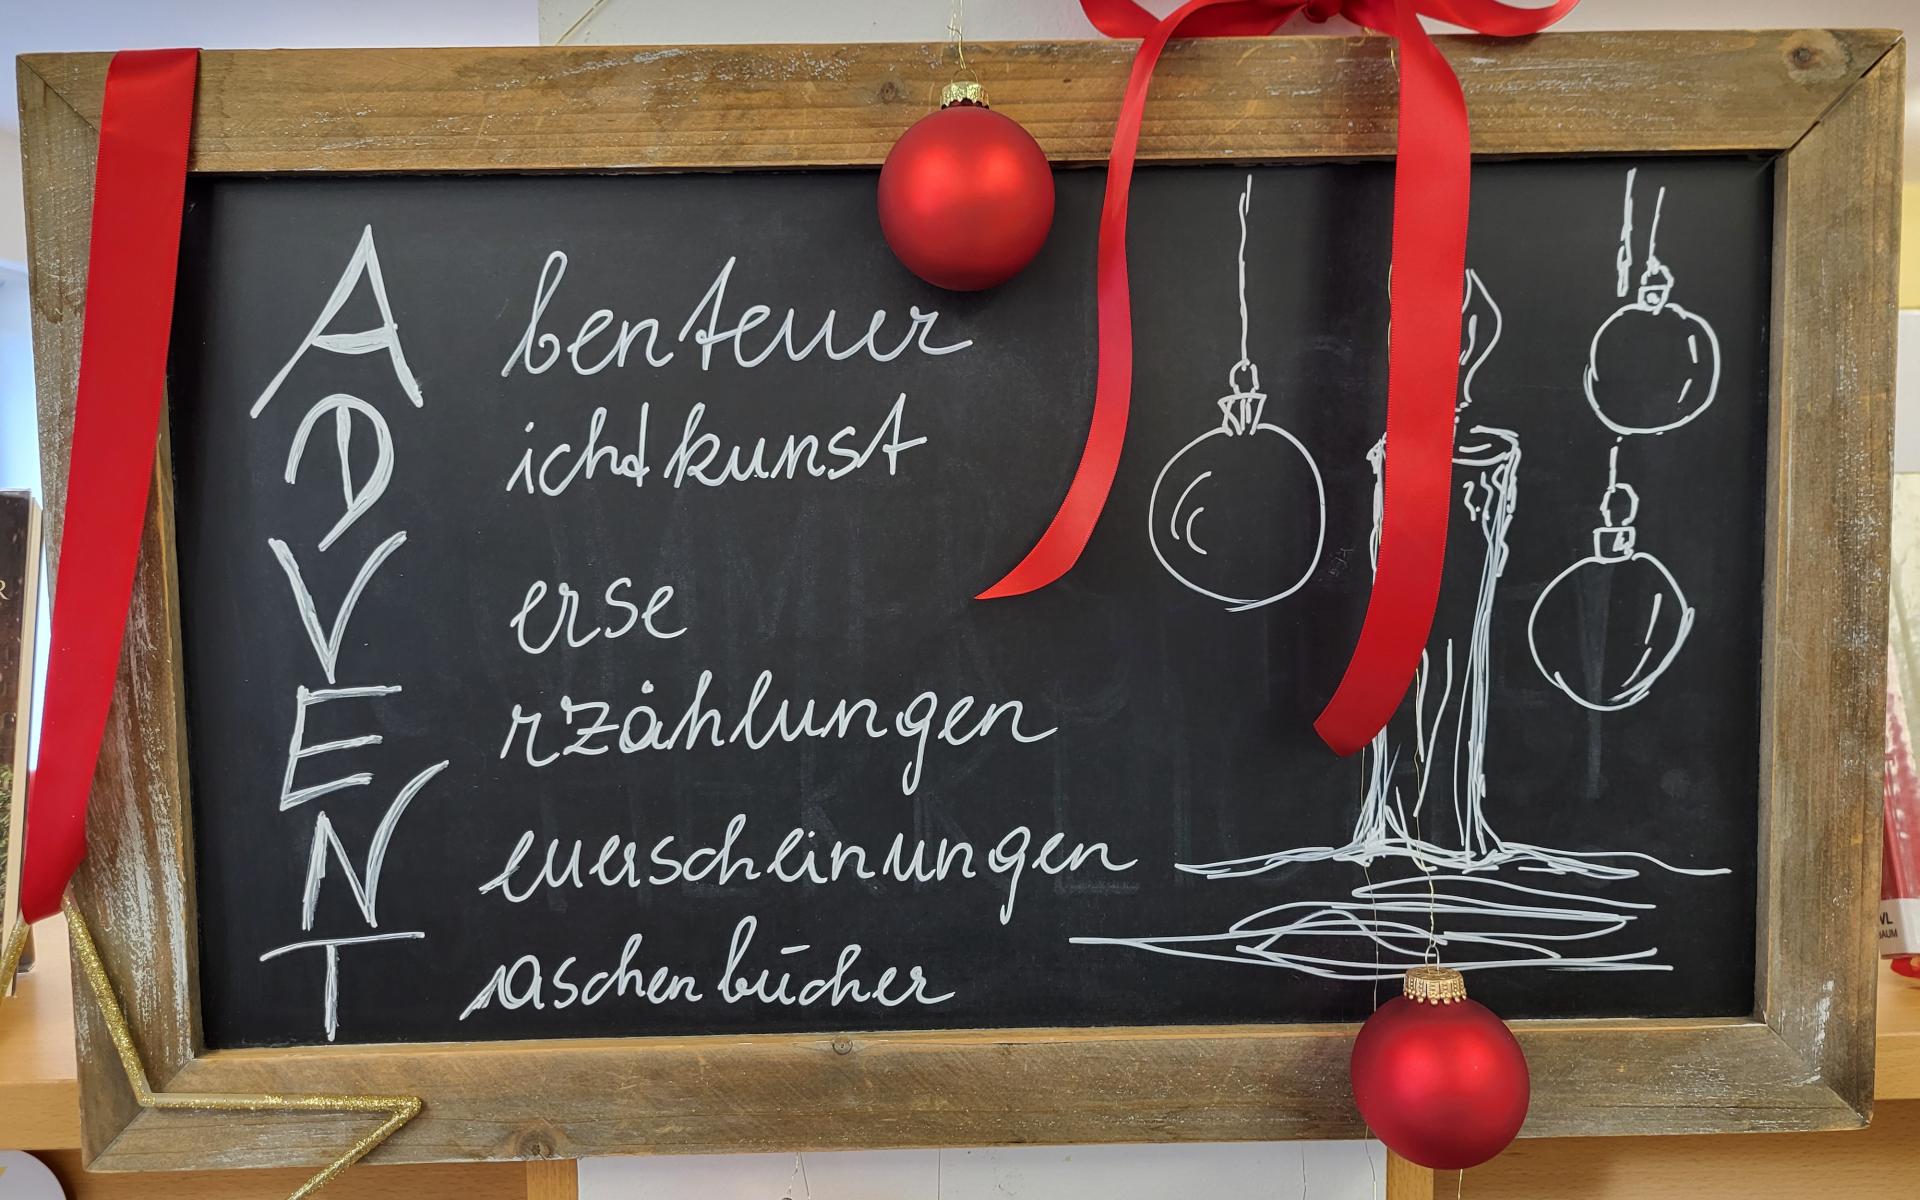 Abenteuer
Dichtkunst
Verse
Erzählungen
Neuerscheinungen
Taschenbücher